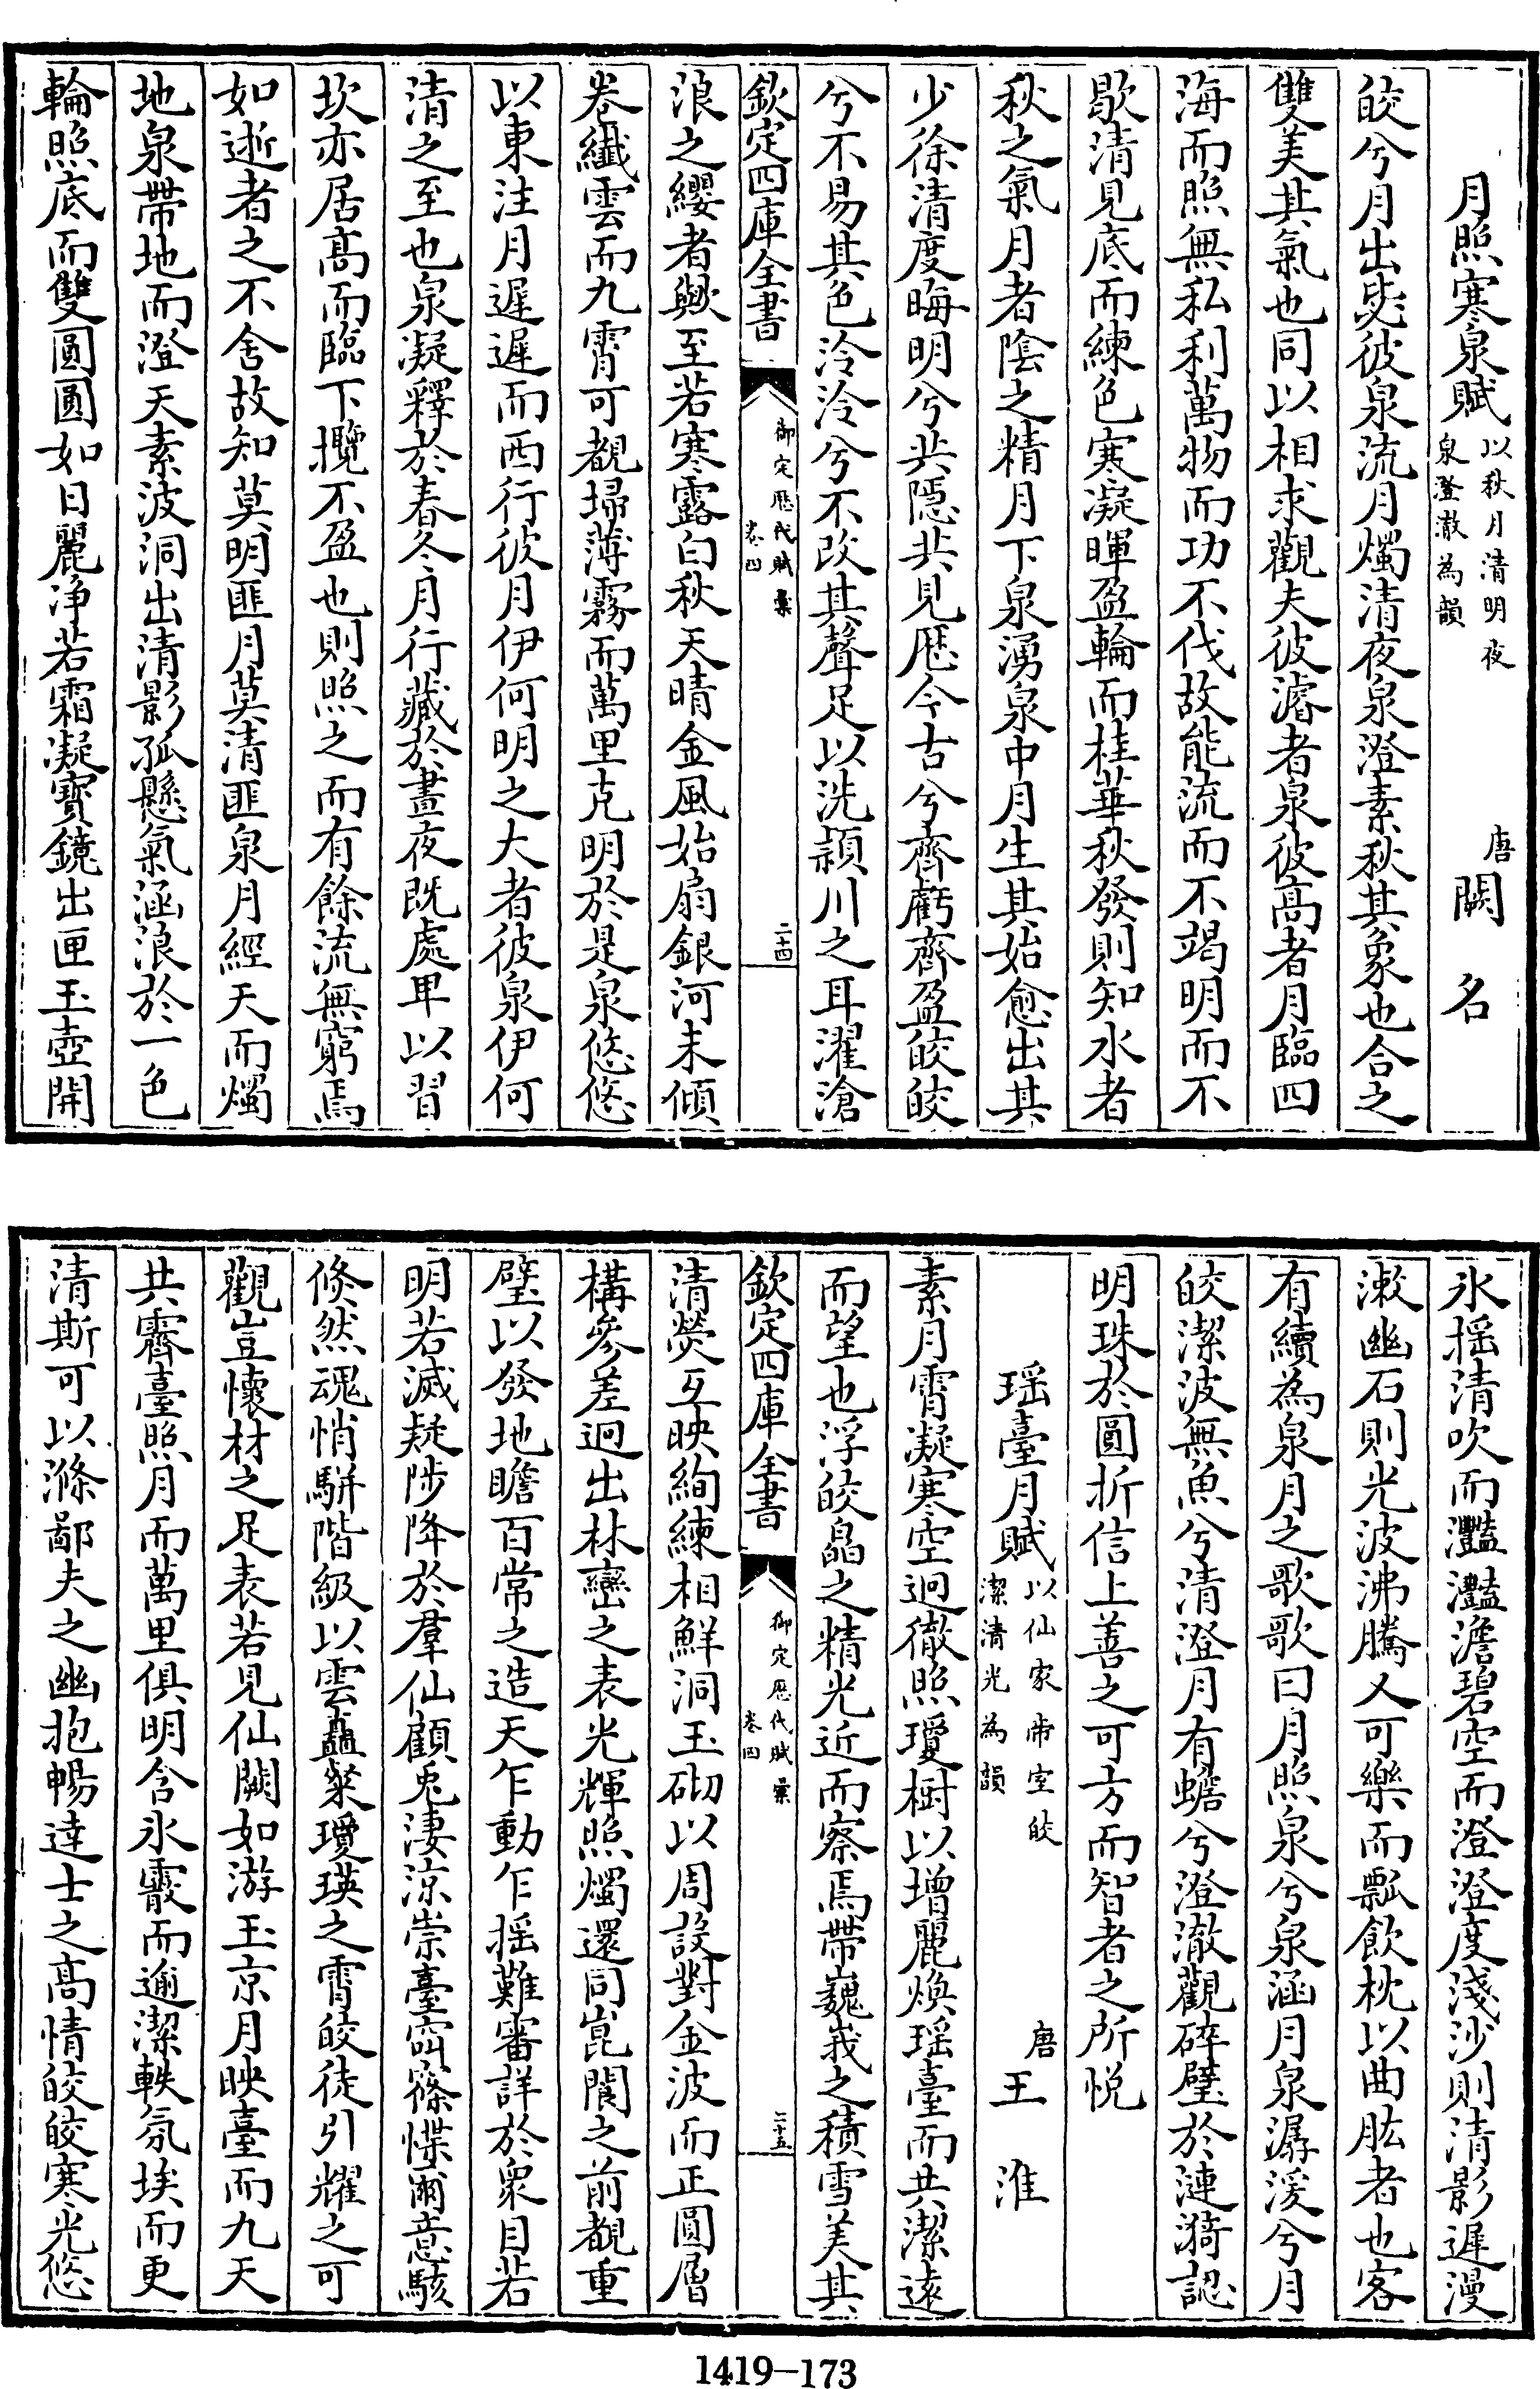 月照寒泉賦以秋月清明夜泉澄澈為韻 唐闕名
皎兮月出毖彼泉流月燭清夜泉澄素秋其象也合之
雙美其氣也同以相求觀夫彼濬者泉彼高者月臨四
海而照無私利萬物而功不伐故能流而不竭明而不
歇清見底而練色寒凝暉盈輪而桂華秋發則知水者
秋之氣月者陰之精月下泉湧泉中月生其始愈出其
少徐清度晦明兮共隱共見歴今古兮齊虧齊盈皎皎
兮不易其色泠泠兮不改其聲足以洗潁川之耳濯滄
欽定四庫全書 御定歴代賦彙卷四 二十四
浪之纓者歟至若寒露白秋天晴金風始扇銀河未傾
卷纖雲而九霄可覩埽薄霧而萬里克明於是泉悠悠
以東注月遲遲而西行彼月伊何明之大者彼泉伊何
清之至也泉凝釋於春冬月行藏於晝夜既處卑以習
坎亦居高而臨下攬不盈也則照之而有餘流無窮焉
如逝者之不舍故知莫明匪月莫清匪泉月經天而燭
地泉帶地而澄天素波洞出清影孤懸氣涵浪於一色
輪照底而雙圓圓如日麗淨若霜凝寶鏡出匣玉壺開
氷揺清吹而灩灩澹碧空而澄澄度淺沙則清影遲漫
漱幽石則光波沸騰又可樂而瓢飲枕以曲肱者也客
有續為泉月之歌歌曰月照泉兮泉涵月泉潺湲兮月
皎潔波無魚兮清澄月有蟾兮澄澈觀碎璧於漣漪認
明珠於圓折信上善之可方而智者之所悦
瑶臺月賦以仙家帝室皎潔清光為韻 唐王淮
素月霄凝寒空迥徹照瓊樹以增麗煥瑶臺而共潔遠
而望也浮皎皛之精光近而察焉帶巍峩之積雪美其
欽定四庫全書 御定歴代賦彙卷四 二十五
清熒互映絢練相鮮洞玉砌以周設對金波而正圓層
構參差迥出林巒之表光輝照燭還同崑閬之前覩重
璧以發地瞻百常之造天乍動乍揺難審詳於衆目若
明若滅疑陟降於羣仙顧兎淒涼崇臺窅篠惵爾意駭
倐然魂悄駢階級以雲矗粲瓊瑛之霄皎徒引耀之可
觀豈懷材之足表若見仙闕如游玉京月映臺而九天
共霽臺照月而萬里俱明含氷霰而逾潔軼氛埃而更
清斯可以滌鄙夫之幽抱暢達士之高情皎皎寒光悠
1419-173